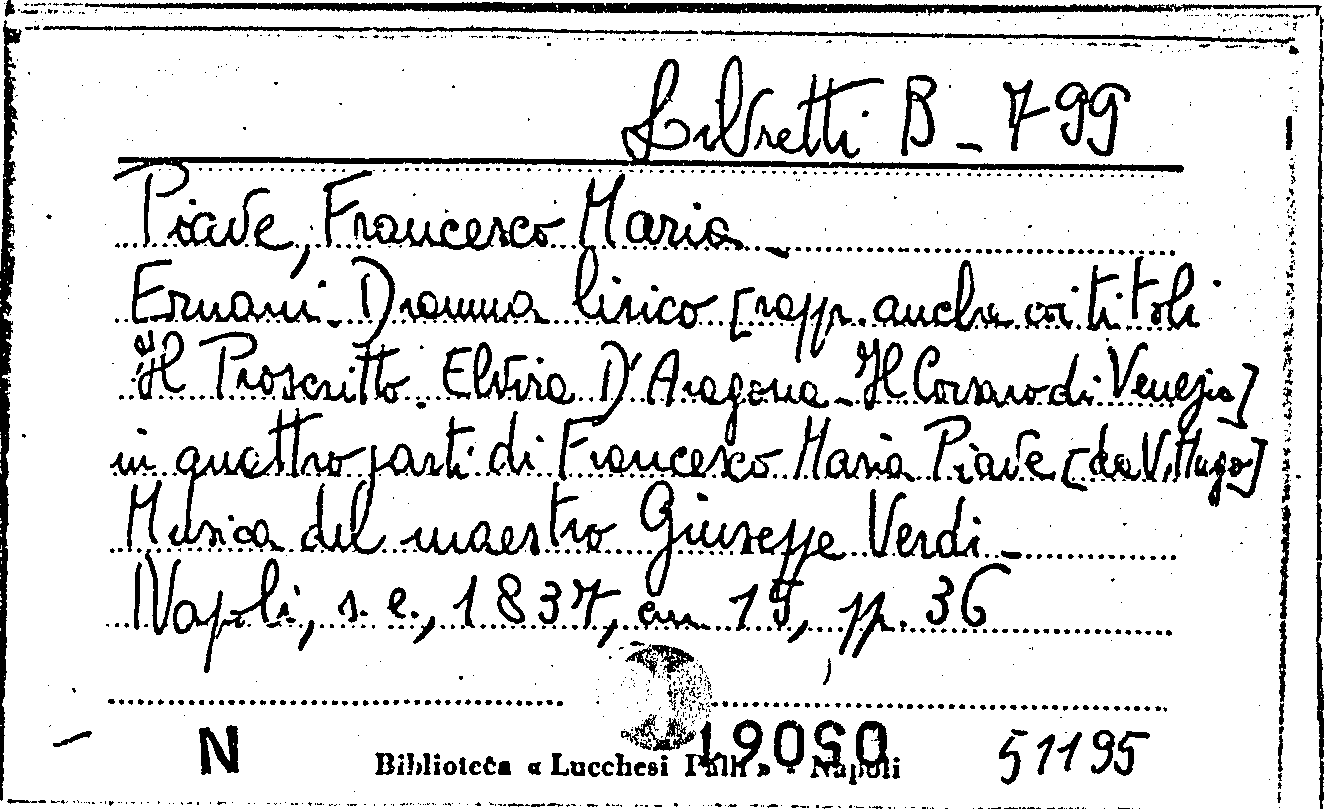 Libretti B - 799
Piave, Francesco Maria -
Ernani - Dramma lirico [rapp. anche coi titoli
Il Proscritto - Elvira D'Aragona - Il Corsaro di Venezia]
in quattro parti di Francesco Maria Piave [da V. Hugo]
Musica del maestro Giuseppe Verdi -
Napoli, s. e., 1837, cm 15, pp. 36
N
Biblioteca « Lucchesi Palli » - Napoli
51195